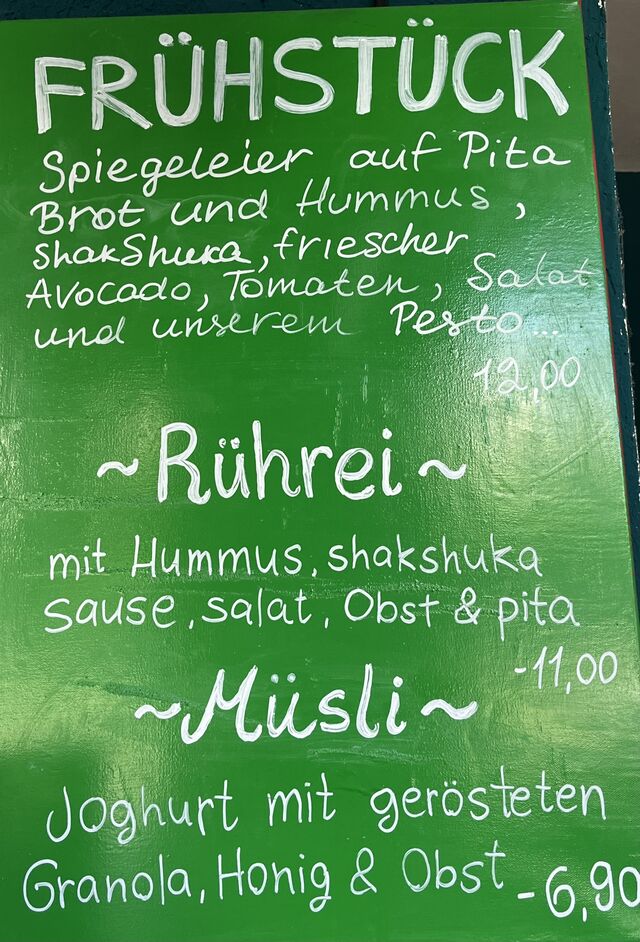 FRÜHSTÜCK
Spiegeleier auf Pita
Brot und Hummus,
shakShuka, friescher
Avocado, Tomaten, Salat
und unserem Pesto...
12,00
~Rührei~
mit Hummus, shakshuka
sause, salat, Obst & pita
-11,00
~Müsli~
Joghurt mit gerösteten
Granola, Honig & Obst -6,90